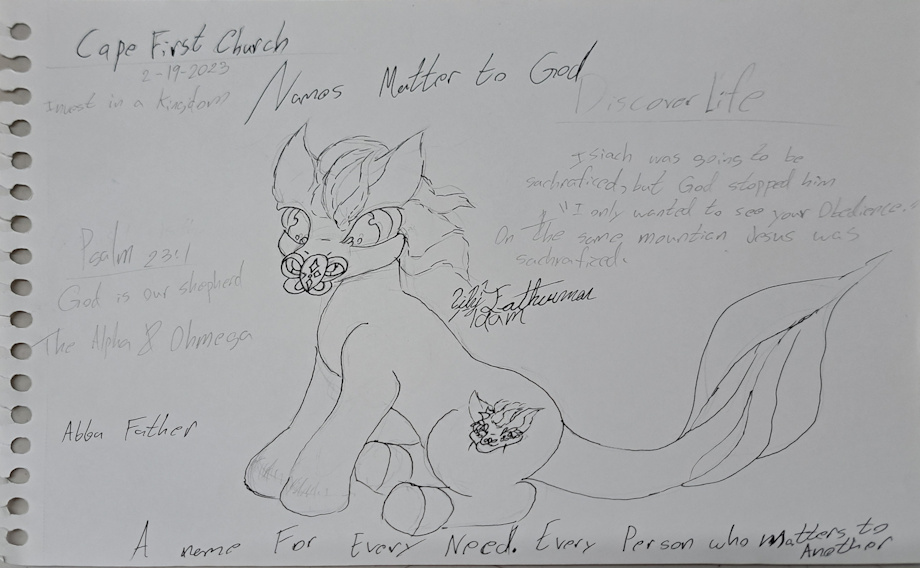 Cape First Church
2-19-2023
Invest in a Kingdom
Names Matter to God
Discover Life
Isiach was going to be
sachrafized, but God stopped him
"I only wanted to see your Obedience."
On the same mountian Jesus was
sachrafized.
Psalm 23:1
God is our shepherd
The Alpha & Ohmega
Abba Father
A name For Every Need. Every Person who matters to
Another